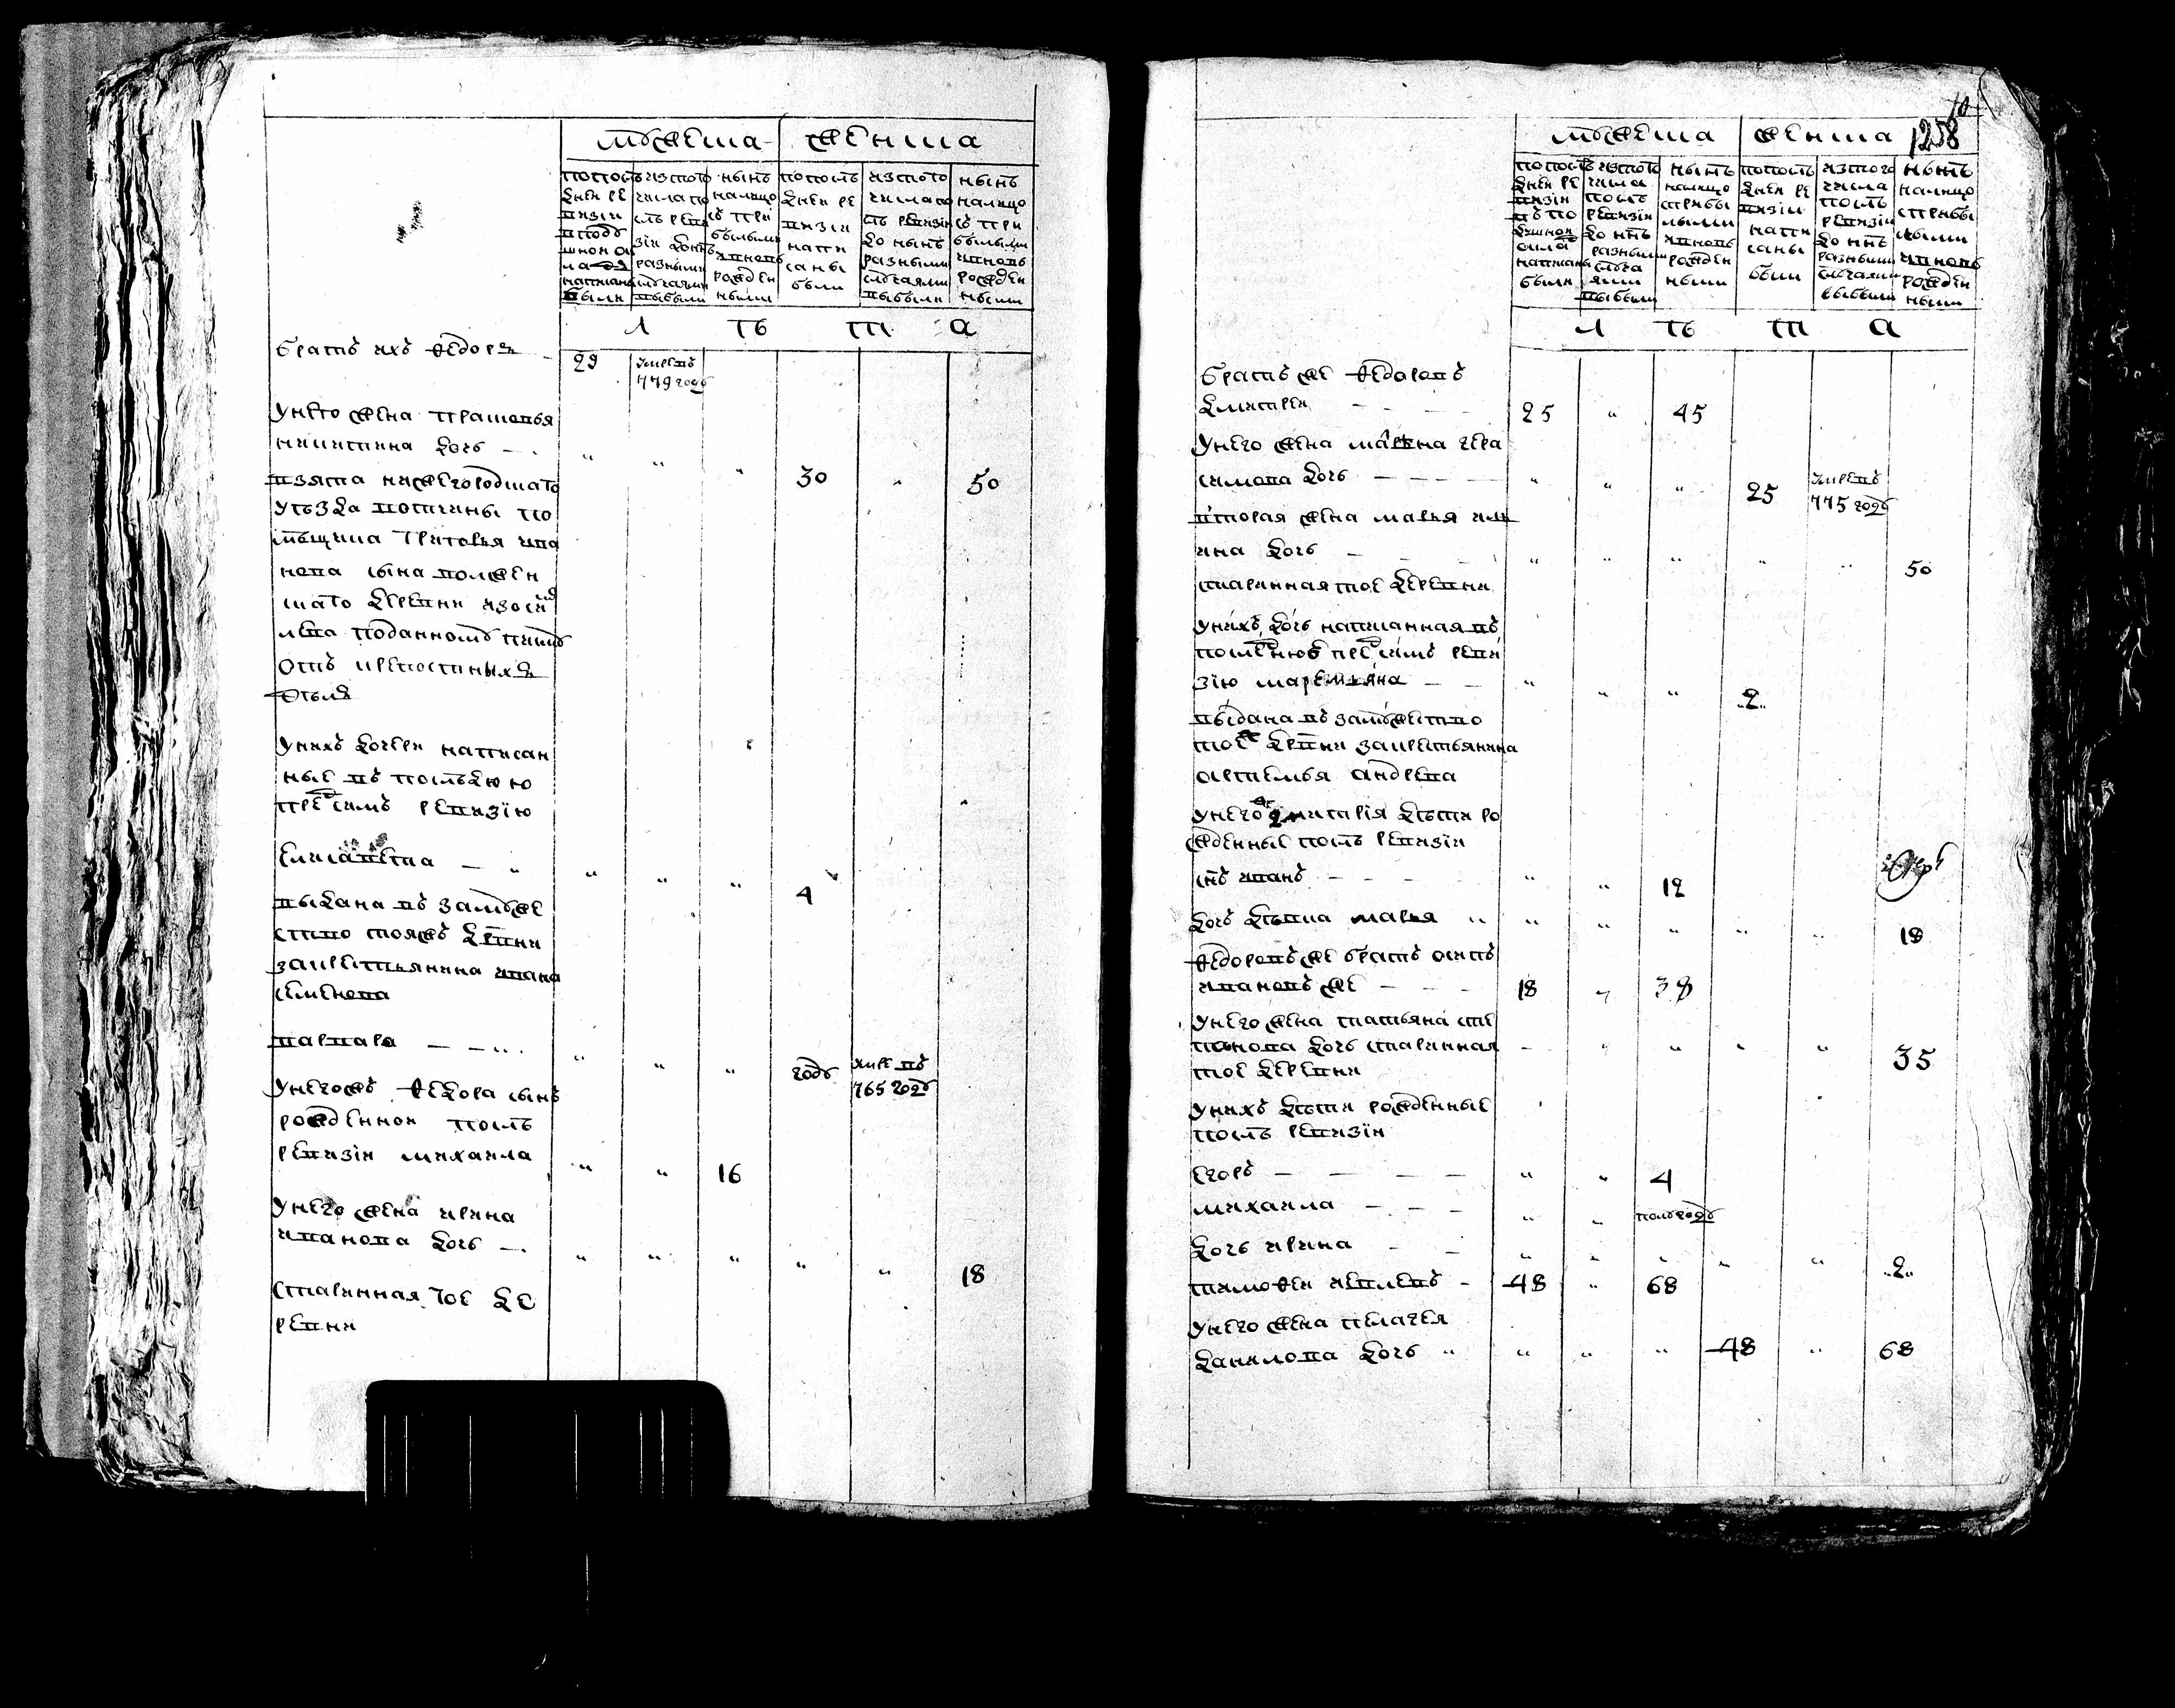 мужеска
женска
по последней ревизии в подушной оклад написаны были
из того числа после ревизии до ныне разными случаями выбыли
ныне налицо с прибылыми и вновь рожденными
по последней ревизии написаны были
из того числа после ревизии до ныне разными случаями выбыли
ныне налицо с прибылыми и вновь рожденными
л ѣ т а
братъ ихъ Федоръ 29 умре въ 779 году
у него жена Прасковья
Никитина дочь 30 50
взята Нижегородскаго
уѣзда вотчины по
мѣщика Григорья Ива
нова сына
отъ крепостныхъ
дѣлъ
у нихъ дочери написан
ные въ последнюю
пред симъ ревизию
Елисавета 4
выдана въ замуже
ство тояжъ деревни
за крестьянина Ивана
Семенова
Варвара году умре въ 765 году
у него жъ Федора сынъ
рожденной послѣ
ревизіи Михаила 16
у него жена Ирина
Иванова дочь 18
старинная тое де
ревни
10
1258
мужеска
женска
по последней ревизии в подушной оклад написаны были
из того числа послѣ ревизіи до ныне разными случаями выбыли
ныне налицо с прибылыми и вновь рожденными
по последней ревизіи написаны были
из того числа послѣ ревизіи до ныне разными случаями выбыли
ныне налицо с прибылыми и вновь рожденными
л ѣ т а
братъ же Федоровъ
Дмитрей 25 45
у него жена Марина Гера
симова дочь 25 умре въ 775 году
вторая жена Марья Иль
ина дочь 50
старинная тое деревни
у нихъ дочь написанная въ
последнюю пред симъ реви
зію Маремьяна 2
выдана въ замужество
тое ж деревни за крестьянина
Артемья Андрева
у него ж Дмитрія дѣти ро
жденные послѣ ревизіи
сынъ Иванъ 12
дочь девка Марья 18
Федоровъ же братъ Осипъ
Ивановъ же 18 38
у него жена Татьяна Сте
панова дочь старинная 35
тое деревни
у нихъ дѣти рожденные
послѣ ревизіи
Егоръ 4
Михаила полгоду
дочь Ирина 2
Тимофей Иевлевъ 48 68
у него жена Пелагея
Данилова дочь 48 68